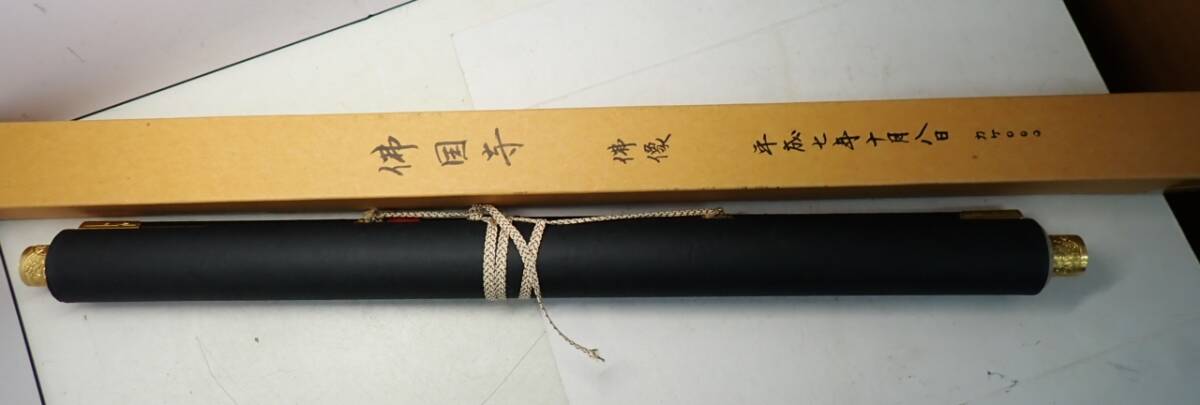 佛国寺
佛像
平成七年十月八日